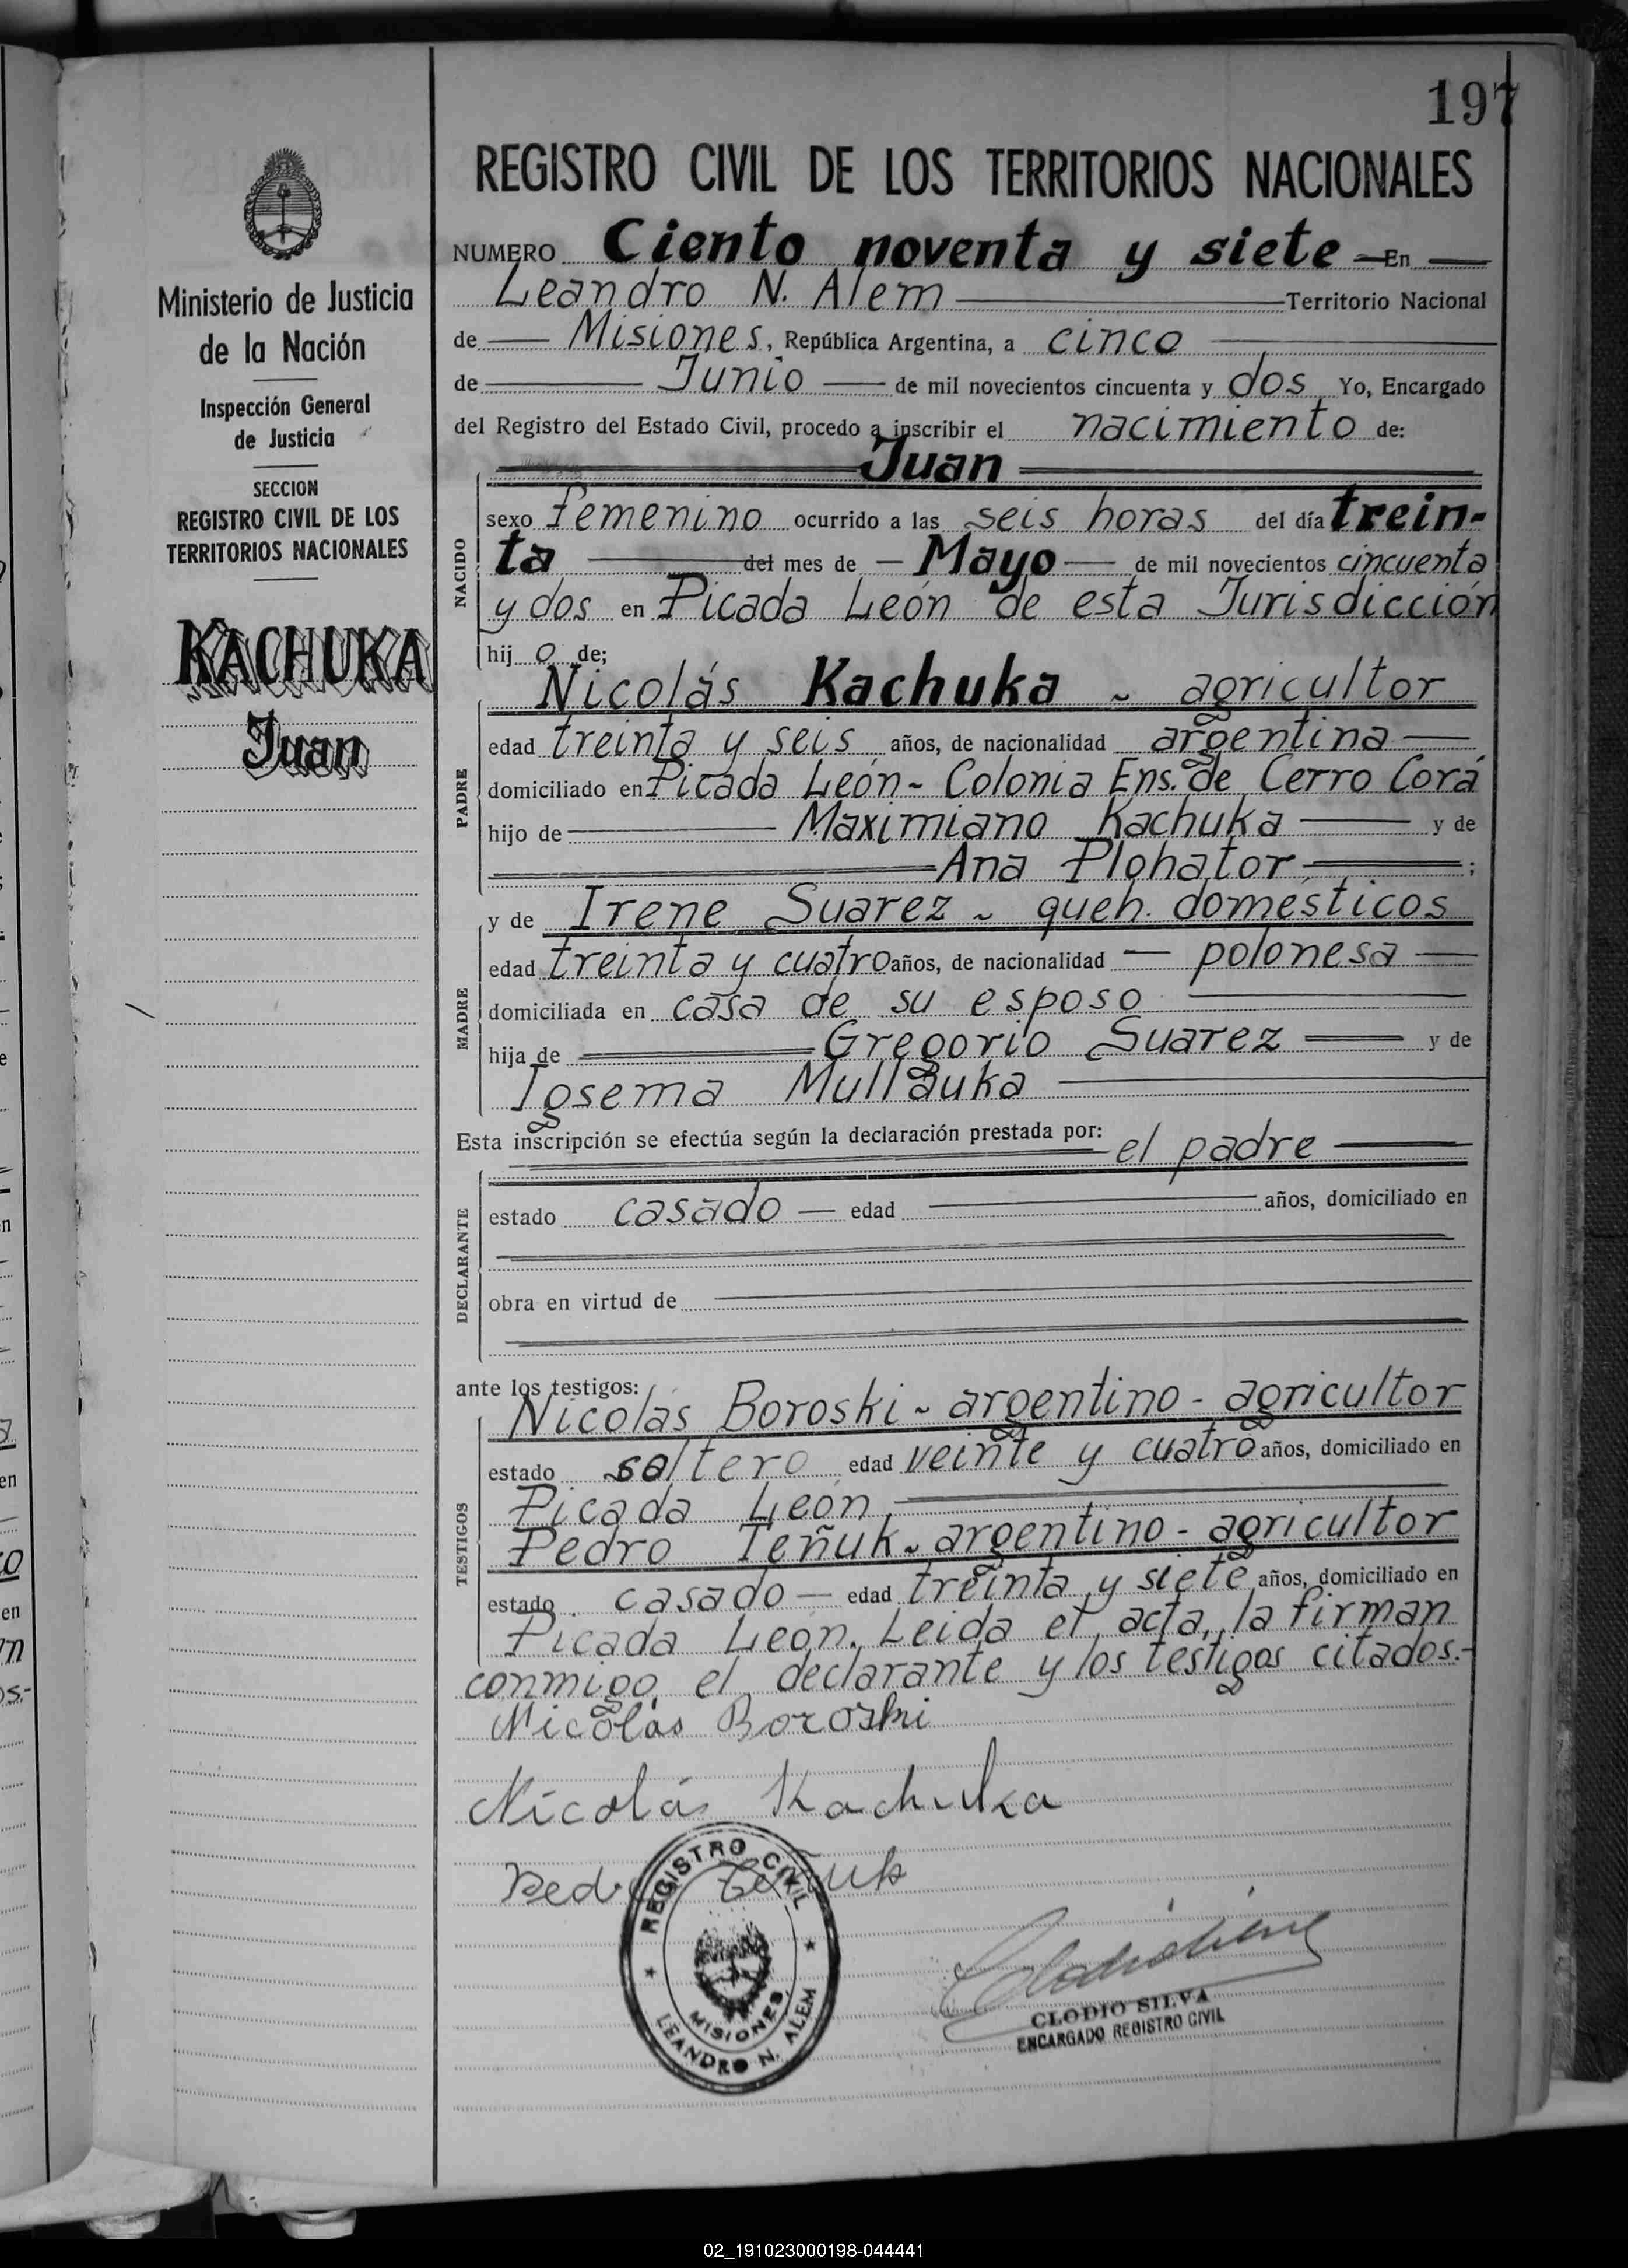 197
REGISTRO CIVIL DE LOS TERRITORIOS NACIONALES
Ministerio de Justicia
de la Nación
Inspección General
de Justicia
SECCION
REGISTRO CIVIL DE LOS
TERRITORIOS NACIONALES
KACHUKA
Juan
NUMERO Ciento noventa y siete En
Leandro N. Alem Territorio Nacional
de Misiones, República Argentina, a cinco
de Junio de mil novecientos cincuenta y dos Yo, Encargado
del Registro del Estado Civil, procedo a inscribir el nacimiento de:
Juan
NACIDO
sexo femenino ocurrido a las seis horas del día trein-
ta del mes de Mayo de mil novecientos cincuenta
y dos en Picada León de esta Jurisdicción
hij o de;
PADRE
Nicolás Kachuka ~ agricultor
edad treinta y seis años, de nacionalidad argentina
domiciliado en Picada León - Colonia Ens. de Cerro Corá
hijo de Maximiano Kachuka y de
Ana Plohator ;
MADRE
y de Irene Suarez ~ queh. domésticos
edad treinta y cuatro años, de nacionalidad polonesa
domiciliada en casa de su esposo
hija de Gregorio Suarez y de
Igsema Mullauka
Esta inscripción se efectúa según la declaración prestada por: el padre
DECLARANTE
estado casado edad años, domiciliado en
obra en virtud de
ante los testigos:
TESTIGOS
Nicolás Boroski ~ argentino - agricultor
estado soltero edad veinte y cuatro años, domiciliado en
Picada León
Pedro Teñuk ~ argentino - agricultor
estado casado edad treinta y siete años, domiciliado en
Picada León. Leida el acta, la firman
conmigo, el declarante y los testigos citados.-
Nicolás Boroski
Nicolás Kachuka
Pedro Teñuk
REGISTRO CIVIL
MISIONES
LEANDRO N. ALEM
CLODIO SILVA
ENCARGADO REGISTRO CIVIL
02_191023000198-044441